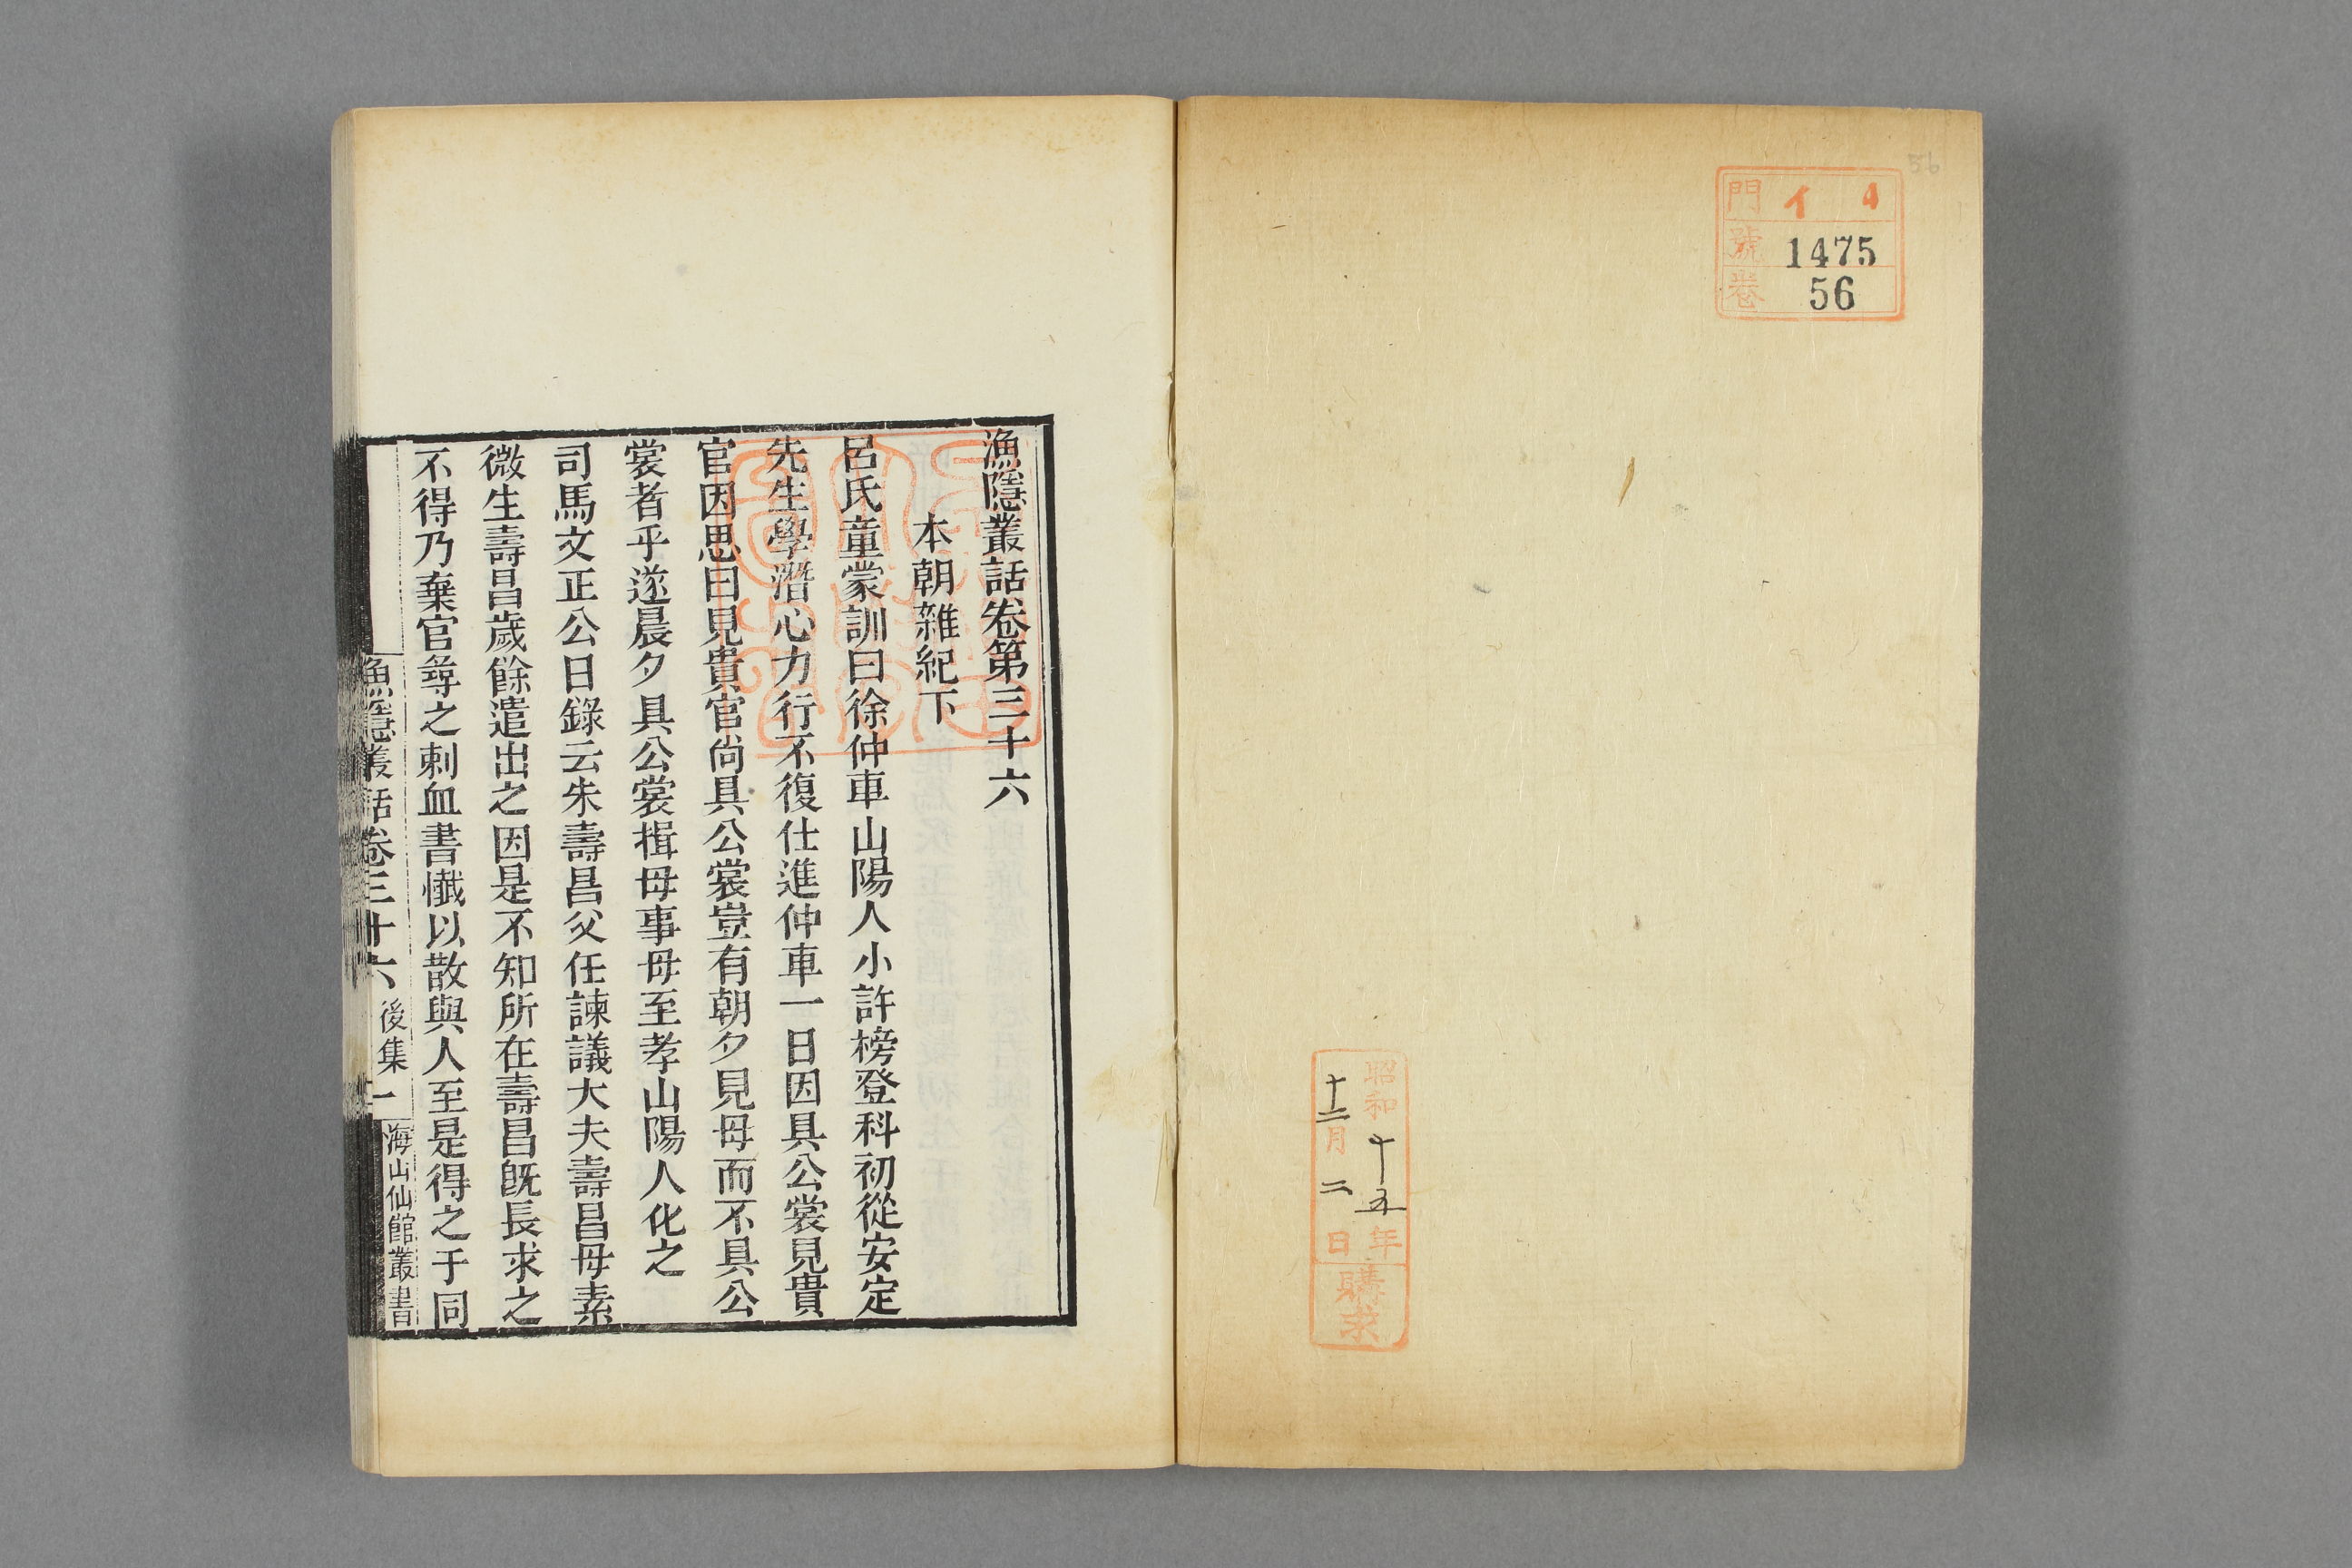 56
門 イ 4
號 1475
卷 56
昭和十五年
十二月二日
購求
漁隱叢話卷第三十六
本朝雜紀下
呂氏童蒙訓曰徐仲車山陽人小許榜登科初從安定
先生學潛心力行不復仕進仲車一日因具公裳見貴
官因思曰見貴官尚具公裳豈有朝夕見母而不具公
裳者乎遂晨夕具公裳揖母事母至孝山陽人化之
司馬文正公日錄云朱壽昌父任諫議大夫壽昌母素
微生壽昌歲餘遣出之因是不知所在壽昌旣長求之
不得乃棄官尋之刺血書懺以散與人至是得之于同
漁隱叢話卷三十六 後集 一 海山仙館叢書